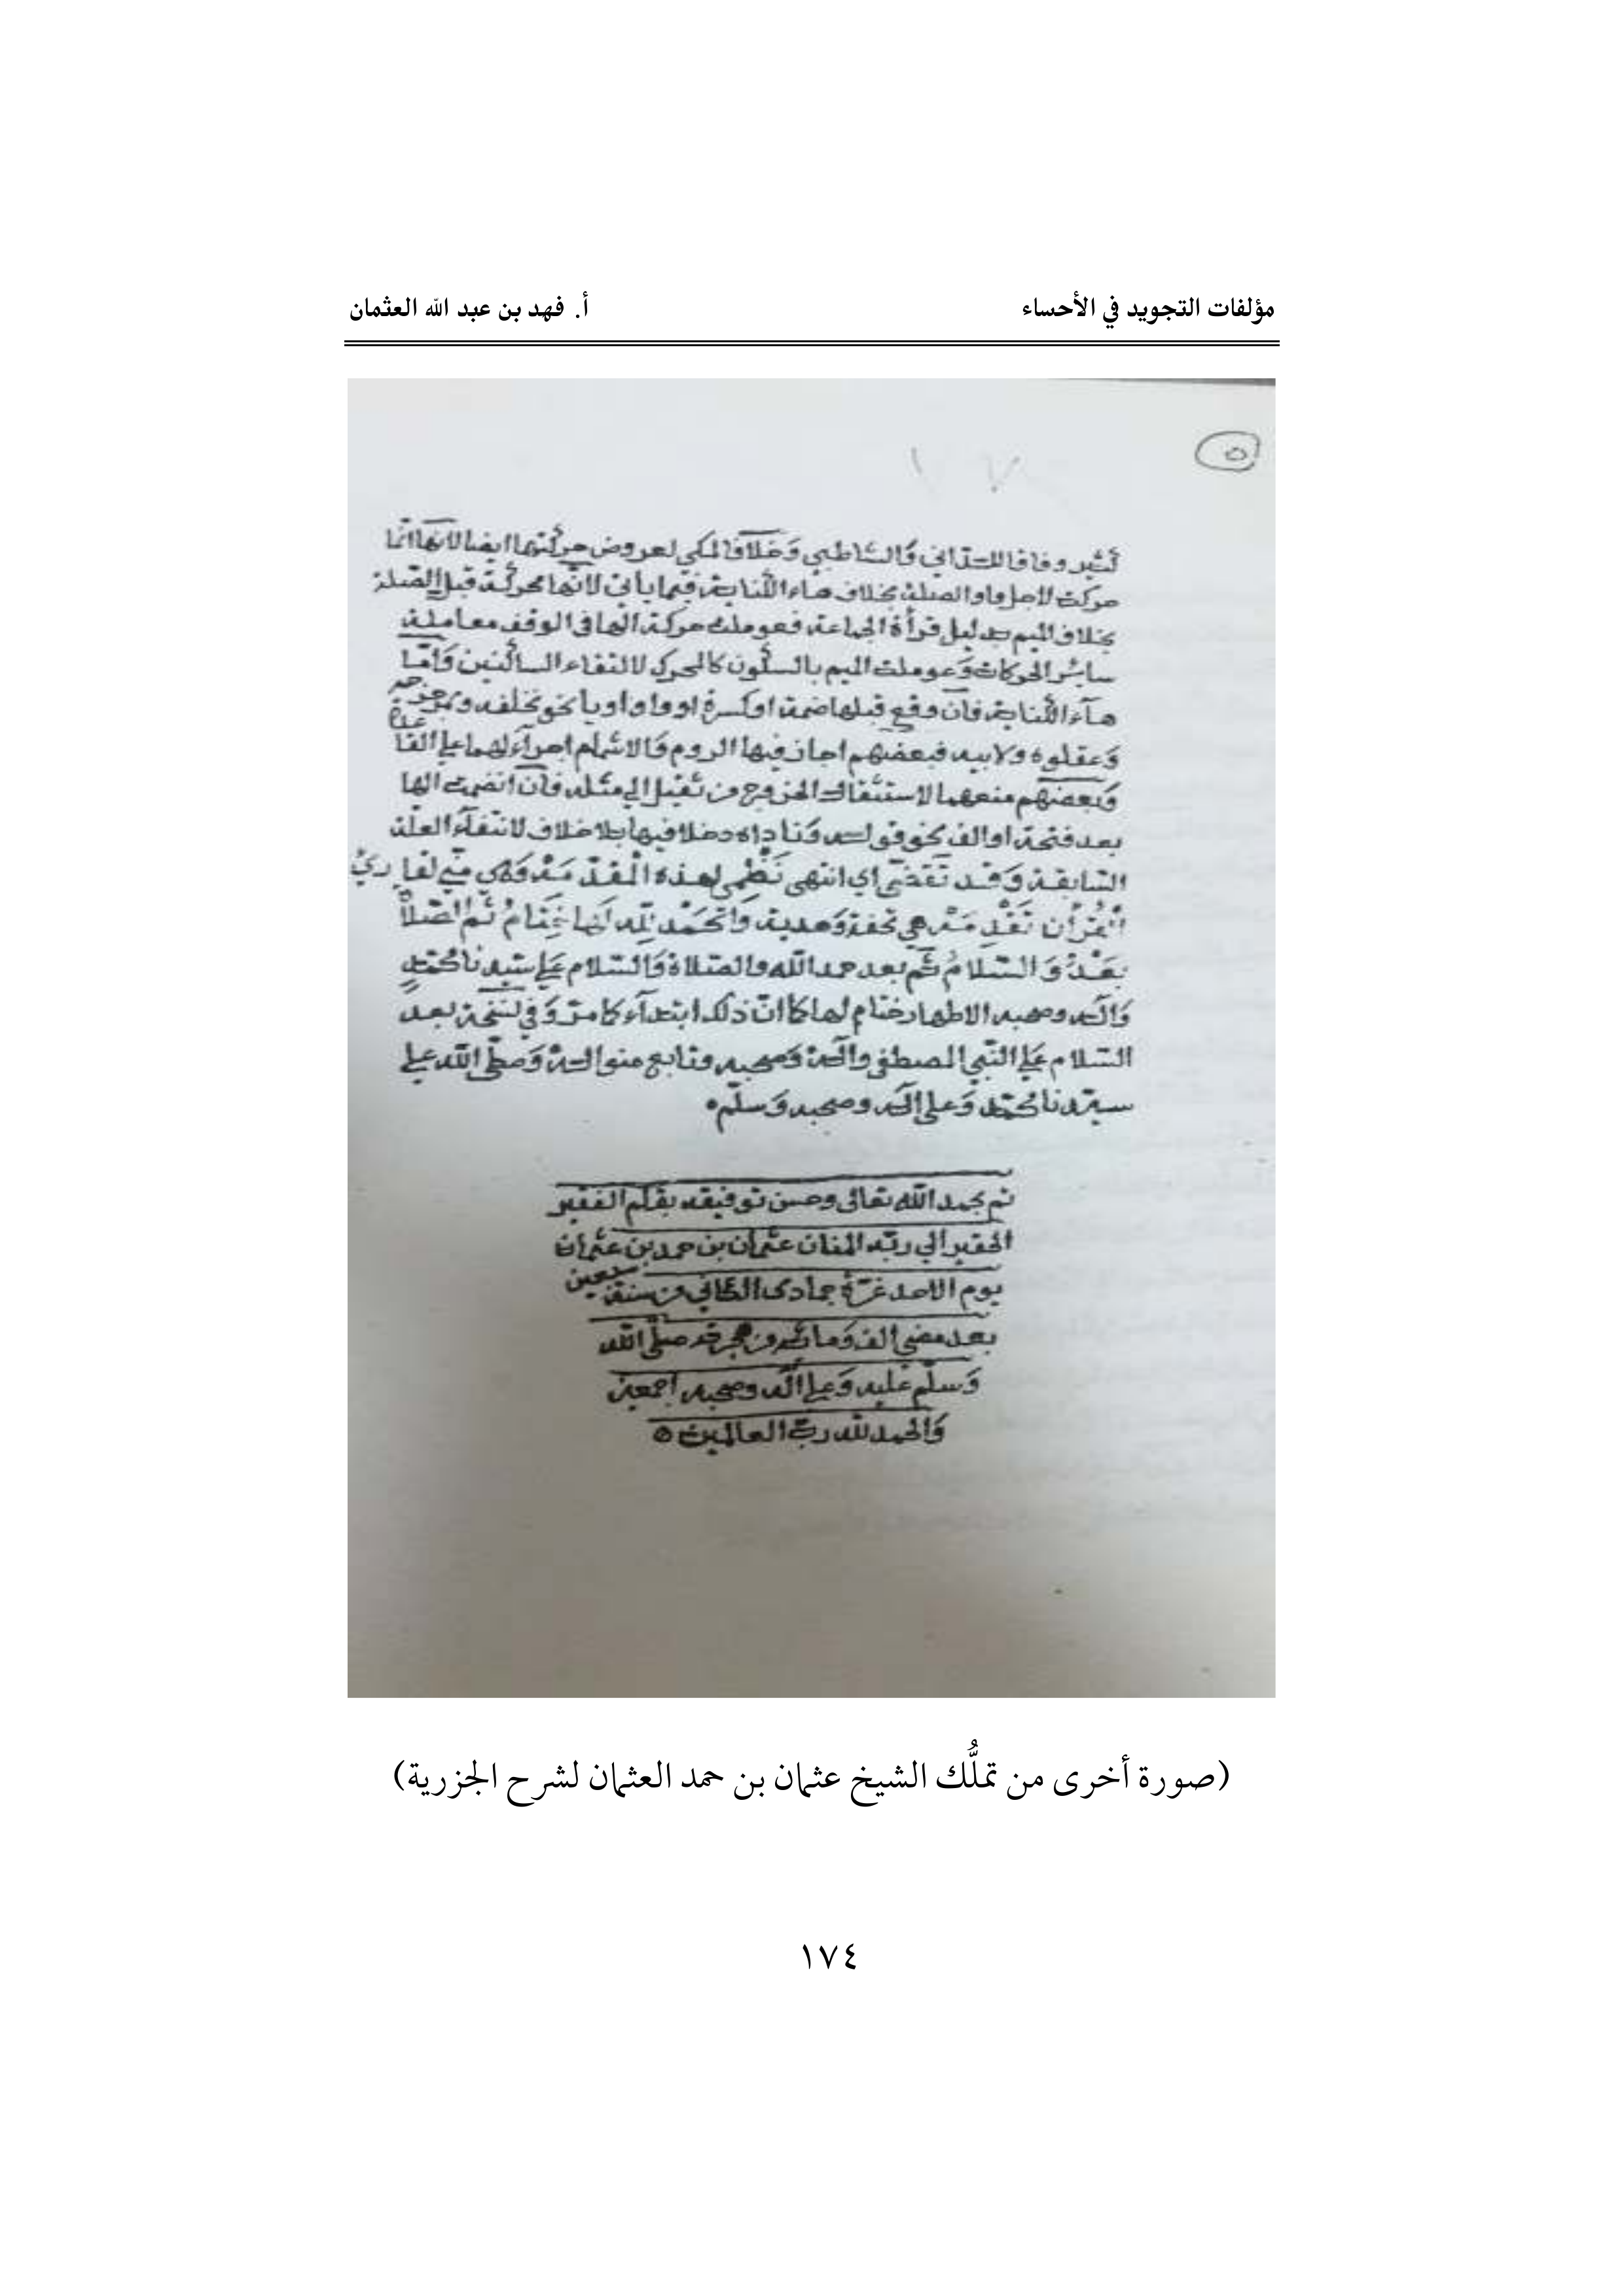 مؤلفات التجويد في الأحساء
أ. فهد بن عبد الله العثمان
٥
كثير وفاقا للداني والشاطبي وخلافا لمكي لعروض حركتها ايضا لانها انما
حركت لاجل واو الصلة بخلاف هاء الكناية فيما يأتي لانها محركة قبل الصلة
بخلاف الميم بدليل قرأة الجماعة فعوملت حركة الها في الوقف معاملة
سائر الحركات وعوملت الميم بالسكون كالمحرك لالتقاء الساكنين وامّا
هآء الكناية فان وقع قبلها ضمة او كسرة او واو او يا نحو نخلفه وبمزحزحه
وعقلوه ولابيه فبعضهم اجاز فيها الروم والاشمام اجرآء لهما على القاعدة
وبعضهم منعهما لاستثقال الخروج من ثقيل الى مثله فان انضمت الها
بعد فتحة او الف نحو قوله وناداه دخلا فيها بلا خلاف لانتفآء العلة
السابقة وقد تقضّى اي انتهى نظمي لهذه المقدّمة وهي منّي لقاريْ
القرأن تقدمة هي تحفة وهدية والحمد لله لها ختام ثم الصلاة
بعد والسلام ثم بعد حمد الله والصلاة والسلام على سيدنا محمد
وآله وصحبه الاطهار ختام لها كما انّ ذلك ابتدآء كما مرّ وفي نسخة بعد
السلام على النّبي المصطفى وآله وصحبه وتابع منواله وصلّى الله على
سيّدنا محمّد وعلى آله وصحبه وسلّم
تم بحمد الله تعالى وحسن توفيقه بقلم الفقير
الحقير الى ربّه المنان عثمان بن حمد بن عثمان
يوم الاحد غرّة جمادى الثاني من سنة سبعين
بعد مضي الف ومائة من هجرته صلّى الله
وسلّم عليه وعلى آله وصحبه اجمعين
والحمد لله ربّ العالمين
(صورة أخرى من تملُّك الشيخ عثمان بن حمد العثمان لشرح الجزرية)
١٧٤